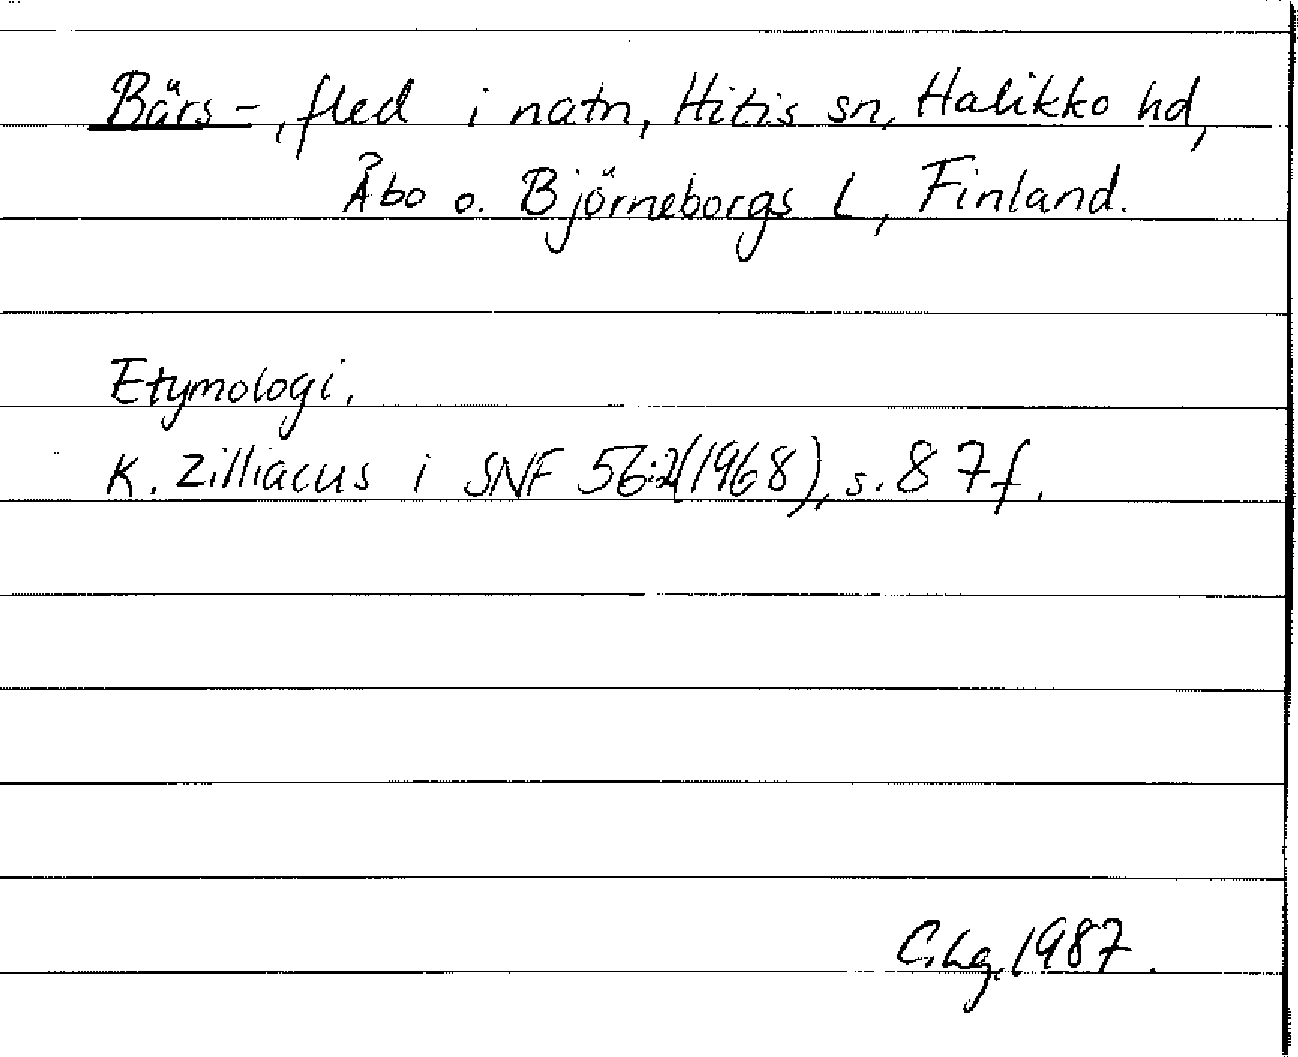 Bärs-, fled i natn, Hitis sn, Halikko hd,
Åbo o. Björneborgs L, Finland.
Etymologi.
K. Zilliacus i SNF 56:2(1968), s. 87f.
C.Lg. 1987.